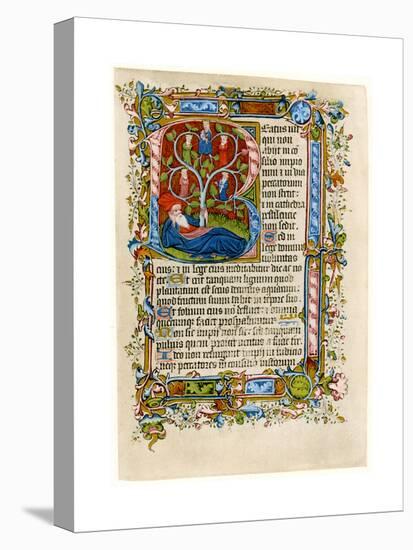 Beatus vir
qui non
abijt in co
silio impio
rum et in via
peccatorum
non stetit:
et in cathedra
pestilencie
non sedit.
Sed in
lege domini
voluntas
eius: et in lege eius meditabitur die ac no
cte Et erit tanquam lignum quod
plantatum est secus decursus aquarum:
quod fructum suum dabit in tempore suo
Et folium eius non defluet: et omnia
quecumque faciet prosperabuntur
Non sic impij non sic: sed tanquam
puluis quem proicit ventus a facie
Ideo non resurgunt impij in iudicio
neque peccatores in consilio iustorum